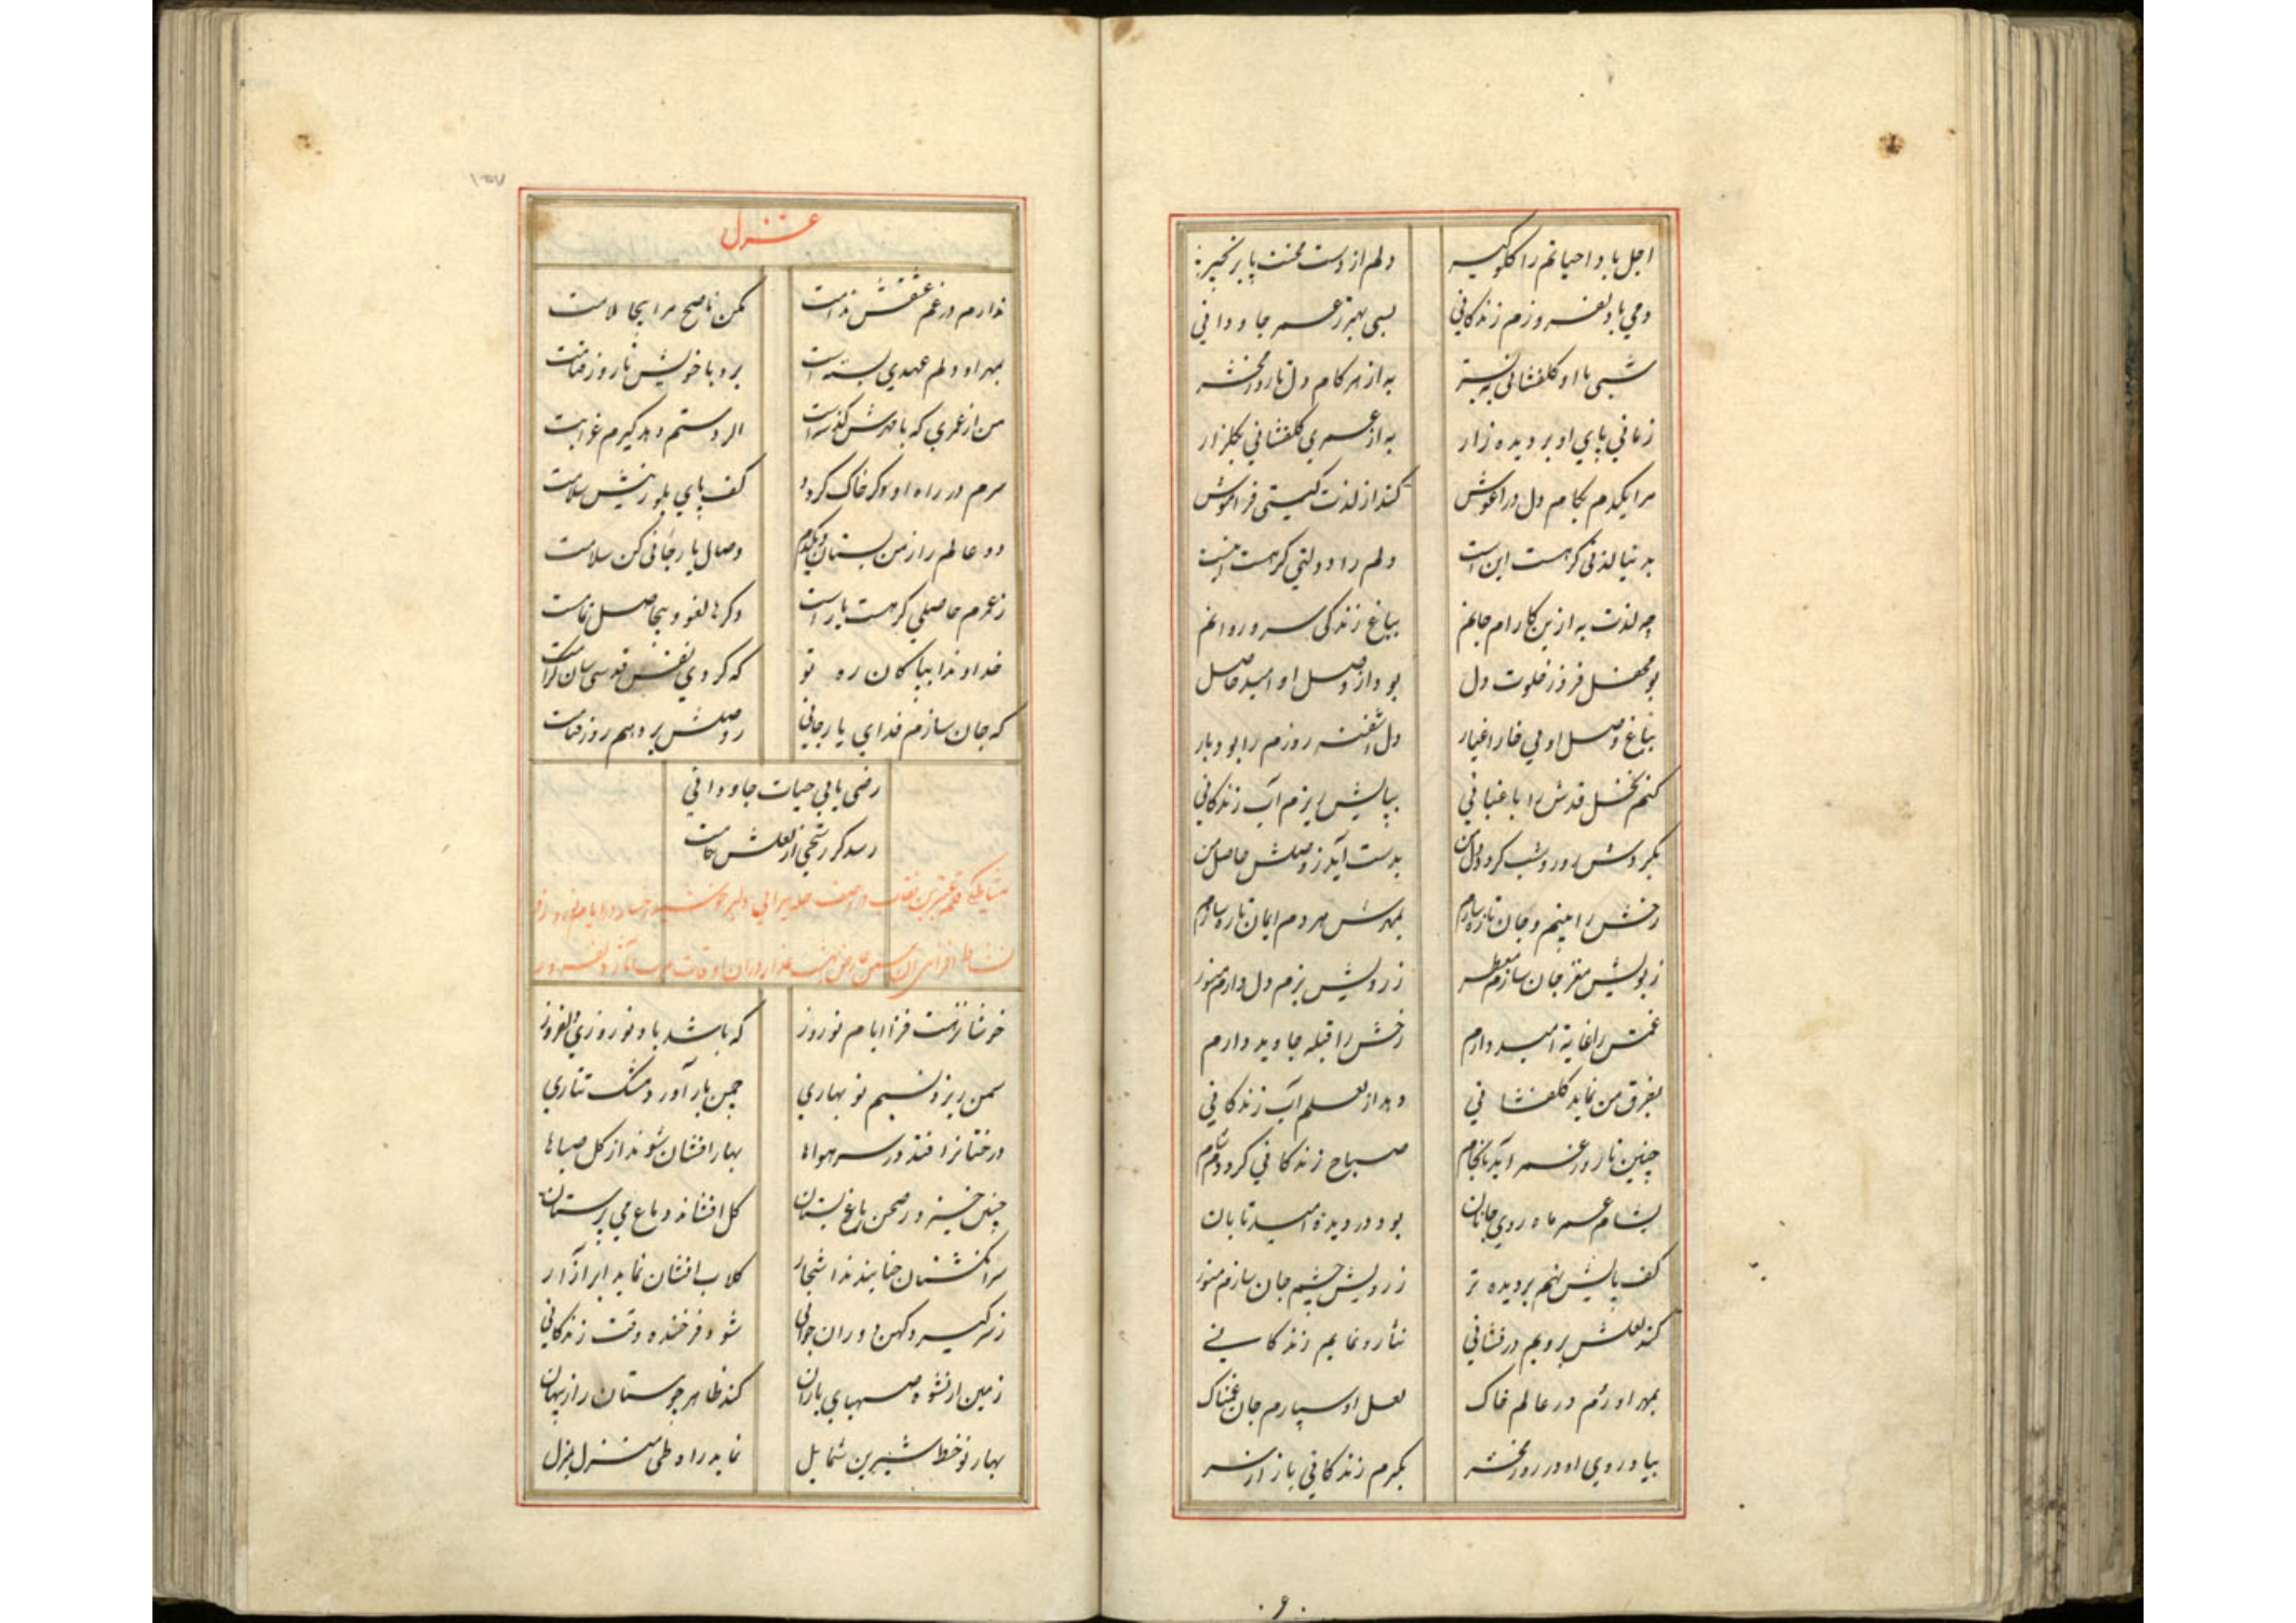 اجل باد احیاتم را کلوکیر دلم از دست محنت پای زنجیر
دمی با دلفروزم زندگانی بسی بهتر ز عمر جاودانی
شبی با او کلفشانی به بستر به از هر کام دل تا روز محشر
زمانی پای او بر دیده زار به از عمری کلفشانی بکلزار
مرا یکدم بکام دل در آغوش کند از لذت کیتی فراموش
بدنیا لذتی کر هست این است دلم را دولتی کر هست اینست
چه لذت به ازین کارام جانم بباغ زندکی سرو روانم
بود محفل فروز خلوت دل بود از وصل او امید حاصل
بباغ وصل او بی خار اغیار دل آشفته روزم را بود یار
کنم نخل قدش را باغبانی بپایش ریزم آب زندکانی
بکردش روز و شب کردد دل من بدست آید ز وصلش حاصل من
رخش را بینم و جان تازه سازم بمهرش هر دم ایمان تازه سازم
ز بویش مغز جان سازم معطر ز رویش بزم دل دارم منور
غمش را غایة امید دارم رخش را قبله جاوید دارم
بفرق من نماید کلفشانی دهد از لعلم آب زندکانی
چنین تا روز عمر آید بانجام صباح زندکانی کرددم شام
بشام عمر ماه روی جانان بود در دیدهٔ امید تابان
کف پایش نهم بر دیده تر ز رویش چشم جان سازم منور
کند لعلش برویم درفشانی نثار و نمایم زندکانی
بمهر او روم در عالم خاک لعل او سپارم جان غمناک
بیاد روی او در روز محشر بکیرم زندکانی باز از سر
غزل
ندارم در غم عشقش ندامت مکن ناصح مرا بیجا ملامت
بمهر او دلم عهدی ببسته است برو با خویش تا روز قیامت
من از عمری که با مهرش کذشته است الر دستم دهد کیرم غرامت
سرم در راه او کر خاک کردد کف پای بلورینش سلامت
دو عالم را ز من بستان و یکدم وصال یار جانی کن سلامت
ز عمرم حاصلی کر هست یار است دکرها لغو و بیحاصل تمامت
خداوندا بپاکان ره تو که کردی نفس قدسی‌شان کرامت
که جان سازم فدای یار جانی وصلش بر دهم روز قیامت
رضی یابی حیات جاودانی
رسد کر رشحی از لعلش بکامت
خوشا نزهت فزا ایام نوروز که باشد باد نوروزی دلفروز
سمن ریزد نسیم نو بهاری چمن بار آورد مشک تتاری
درختانرا فتد در سر هواها بهار افشان شوند از کل صباها
چنین خیزد در صحن باغ بستان کل افشاند دماغ می پرستان
سر انکشتان حنا بندند اشجار کلاب افشان نماید ابر آزار
ز سر کیرد کهن دوران جوانی شود فرخنده وقت زندکانی
زمین از نشوه صهبای باران کند ظاهر چو مستان راز پنهان
بهار نو خط شیرین شمایل نماید راه طی منزل بمنزل